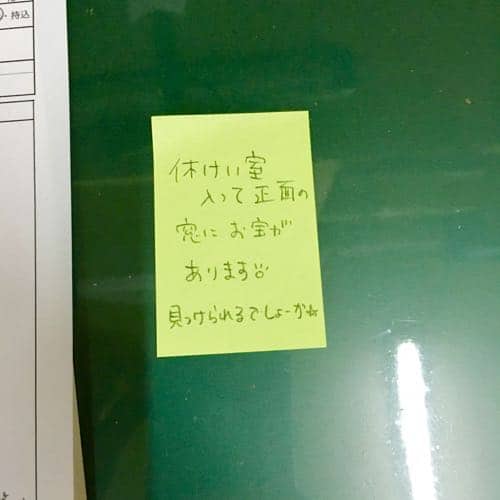 ・持込
休けい室
入って正面の
窓にお宝が
あります
見つけられるでしょーか☆